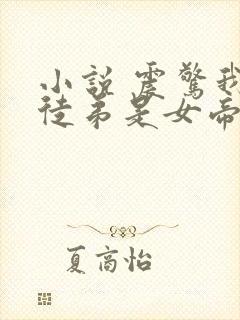 小説 震驚我
徒弟是女帝
夏高怡